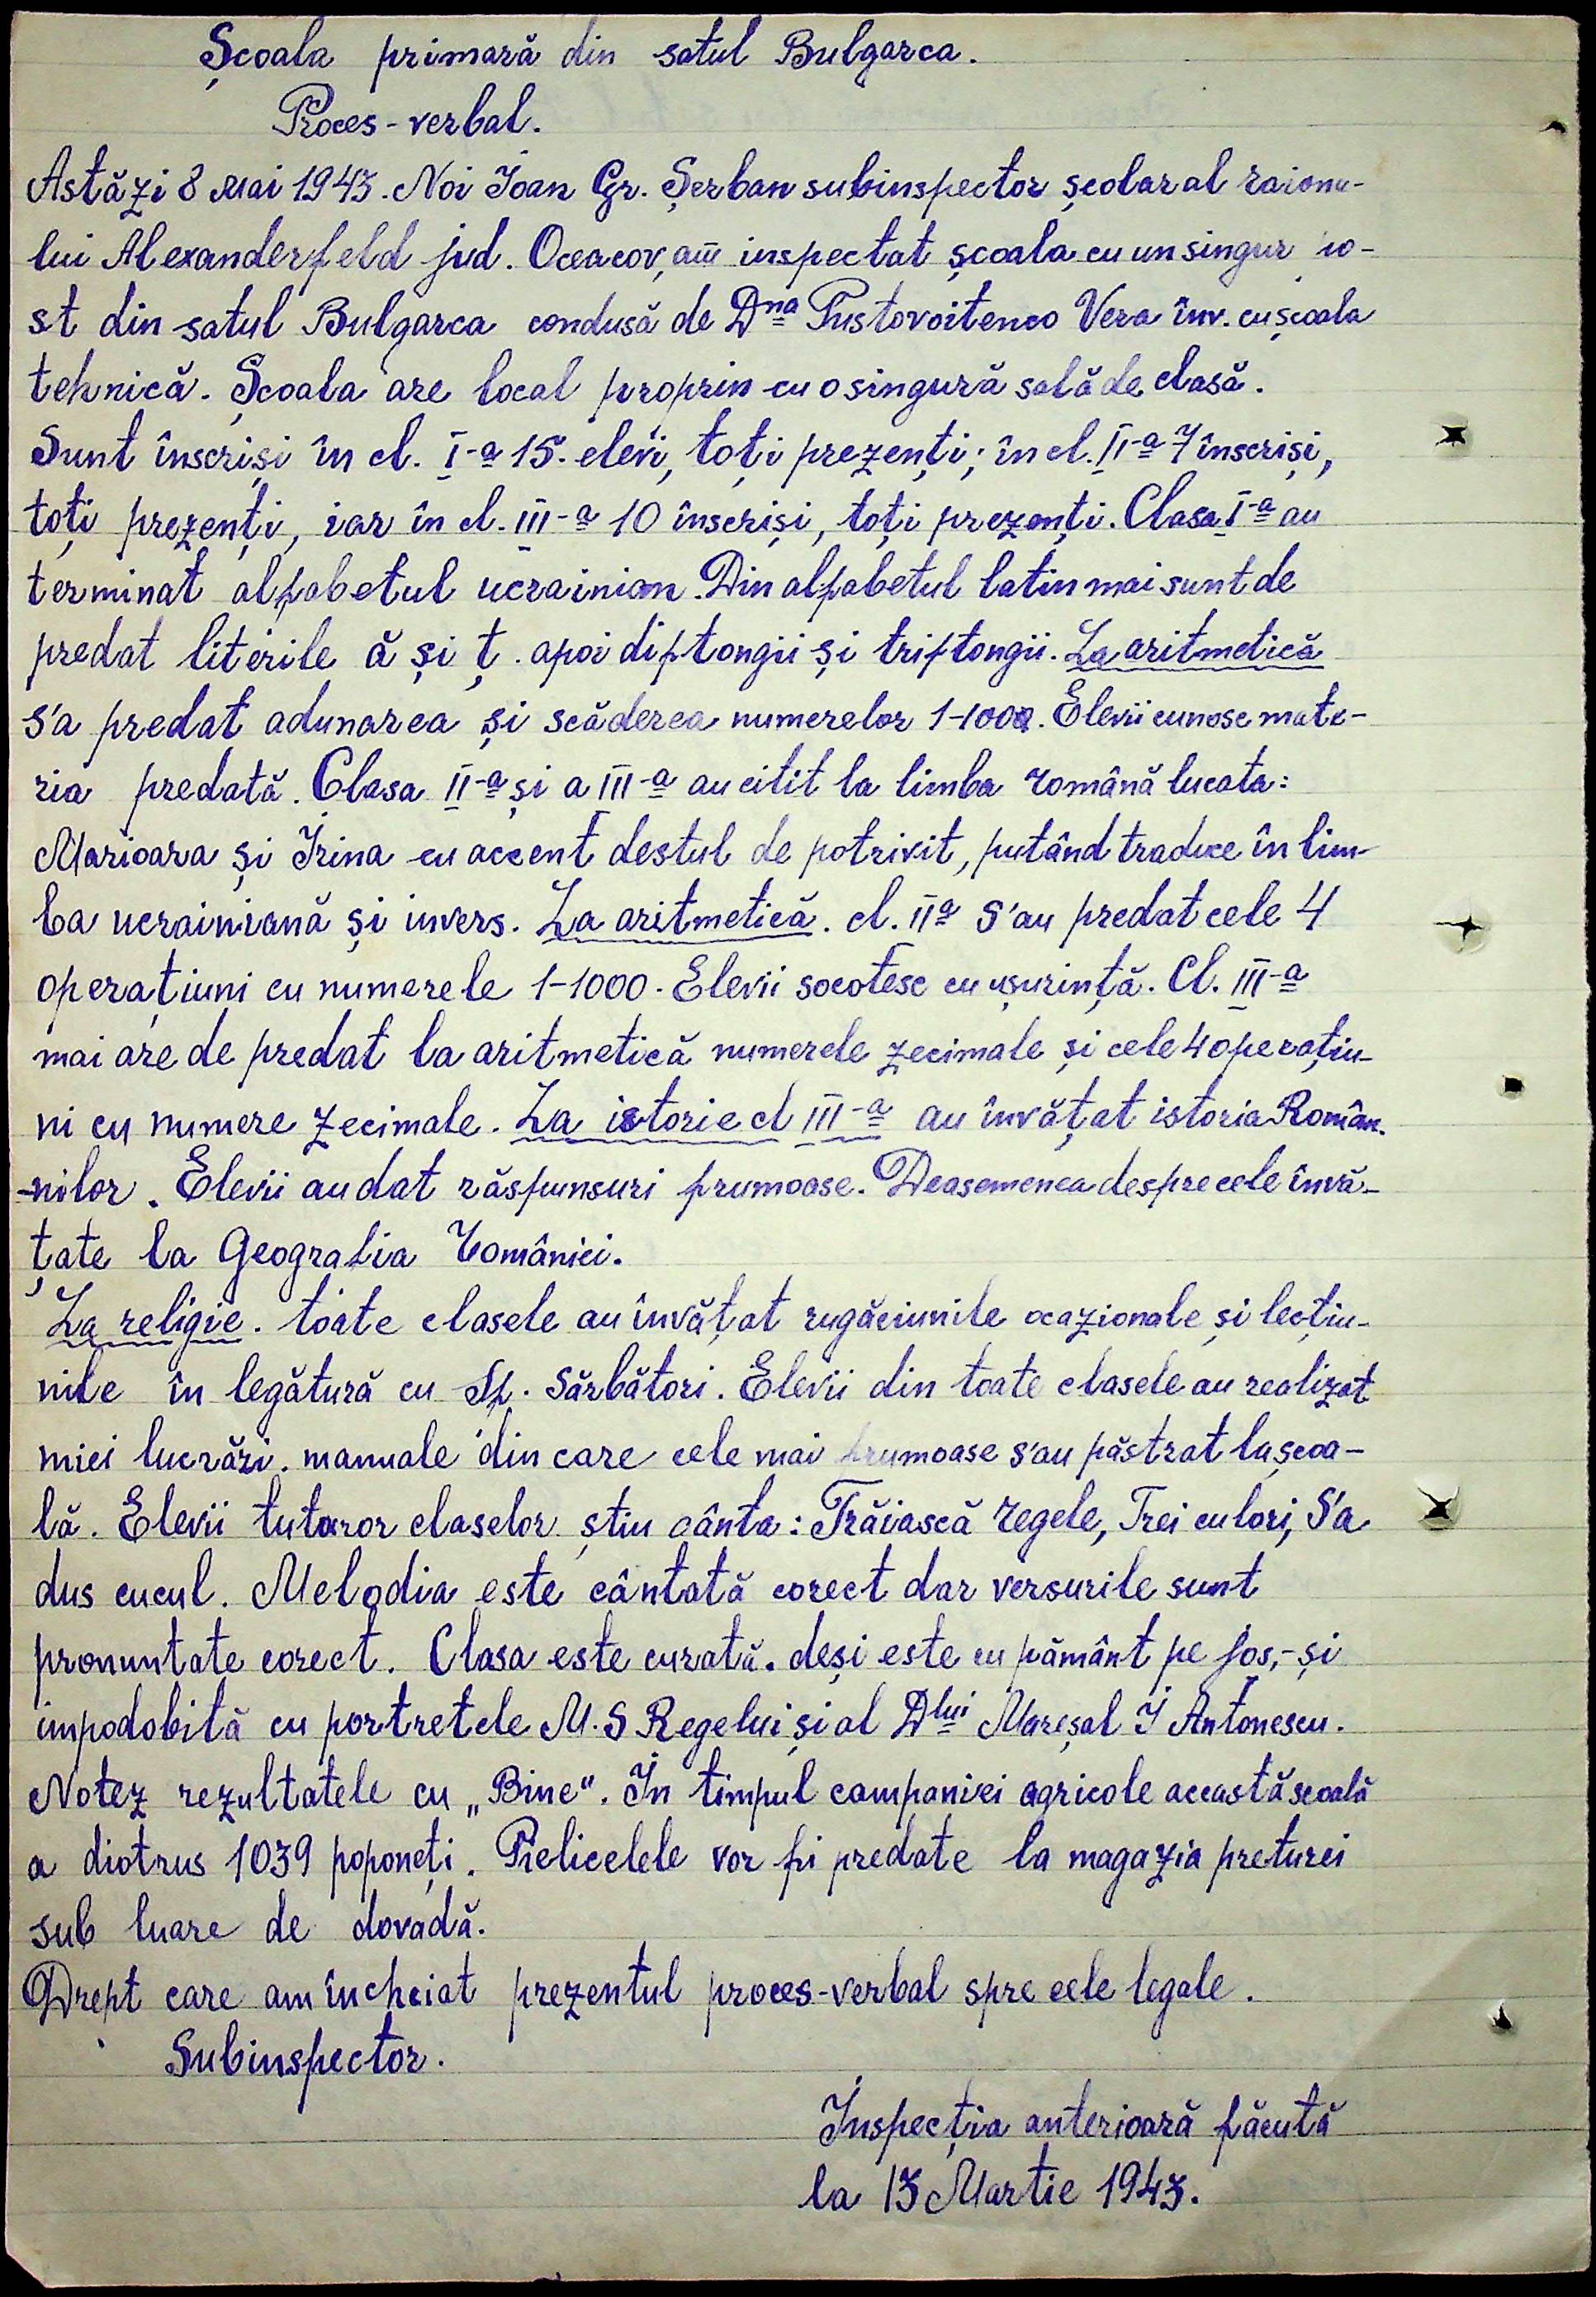 Școala primară din satul Bulgarca.
Proces-verbal.
Astăzi 8 Mai 1943. Noi Ioan Gr. Șerban subinspector școlar al raionu-
lui Alexanderfeld jud. Oceacov, am inspectat școala cu un singur
st din satul Bulgarca condusă de Dna Pustovoitenco Vera înv. cu școala
tehnică. Școala are local proprin cu o singură sală de clasă.
Sunt înscriși în cl. I-a 15. elevi, toți prezenți; în cl. II-a 7 înscriși,
toți prezenți, iar în cl. III-a 10 înscriși, toți prezenți. Clasa I-a au
terminat alfabetul ucrainian. Din alfabetul latin mai sunt de
predat literile ă și ț. apoi diftongii și triftongii. La aritmetică
s'a predat adunarea și scăderea numerelor 1-1000. Elevii cunosc mate-
ria predată. Clasa II-a și a III-a au citit la limba română lucata:
Marioara și Irina cu accent destul de potrivit, putând traduce în lim-
ba ucrainiană și invers. La aritmetică. cl. IIa s'au predat cele 4
operațiuni cu numerele 1-1000. Elevii socotesc cu ușurință. Cl. III-a
mai are de predat la aritmetică numerele zecimale și cele 4 operațiu-
ni cu numere zecimale. La istorie cl III-a au învățat istoria Român-
-nilor. Elevii au dat răspunsuri frumoase. Deasemenea despre cele învă-
țate la Geografia României.
La religie. toate clasele au învățat rugăciunile ocazionale și lecțiu-
nile în legătură cu Sf. Sărbători. Elevii din toate clasele au realizat
mici lucrări. manuale din care cele mai frumoase s'au păstrat la școa-
lă. Elevii tutaror claselor știu cânta: Trăiască Regele, Trei culori, S'a
dus cucul. Melodia este cântată corect dar versurile sunt
pronuntate corect. Clasa este curată. deși este cu pământ pe jos,- și
impodobită cu portretele M.S Regelui și al Dlui Mareșal I Antonescu.
Notez rezultatele cu „Bine". În timpul campaniei agricole această scoală
a distrus 1039 poponeți. Pielicelele vor fi predate la magazia preturei
sub luare de dovadă.
Drept care am încheiat prezentul proces-verbal spre cele legale.
Subinspector.
Inspecția anterioară făcută
la 13 Martie 1943.